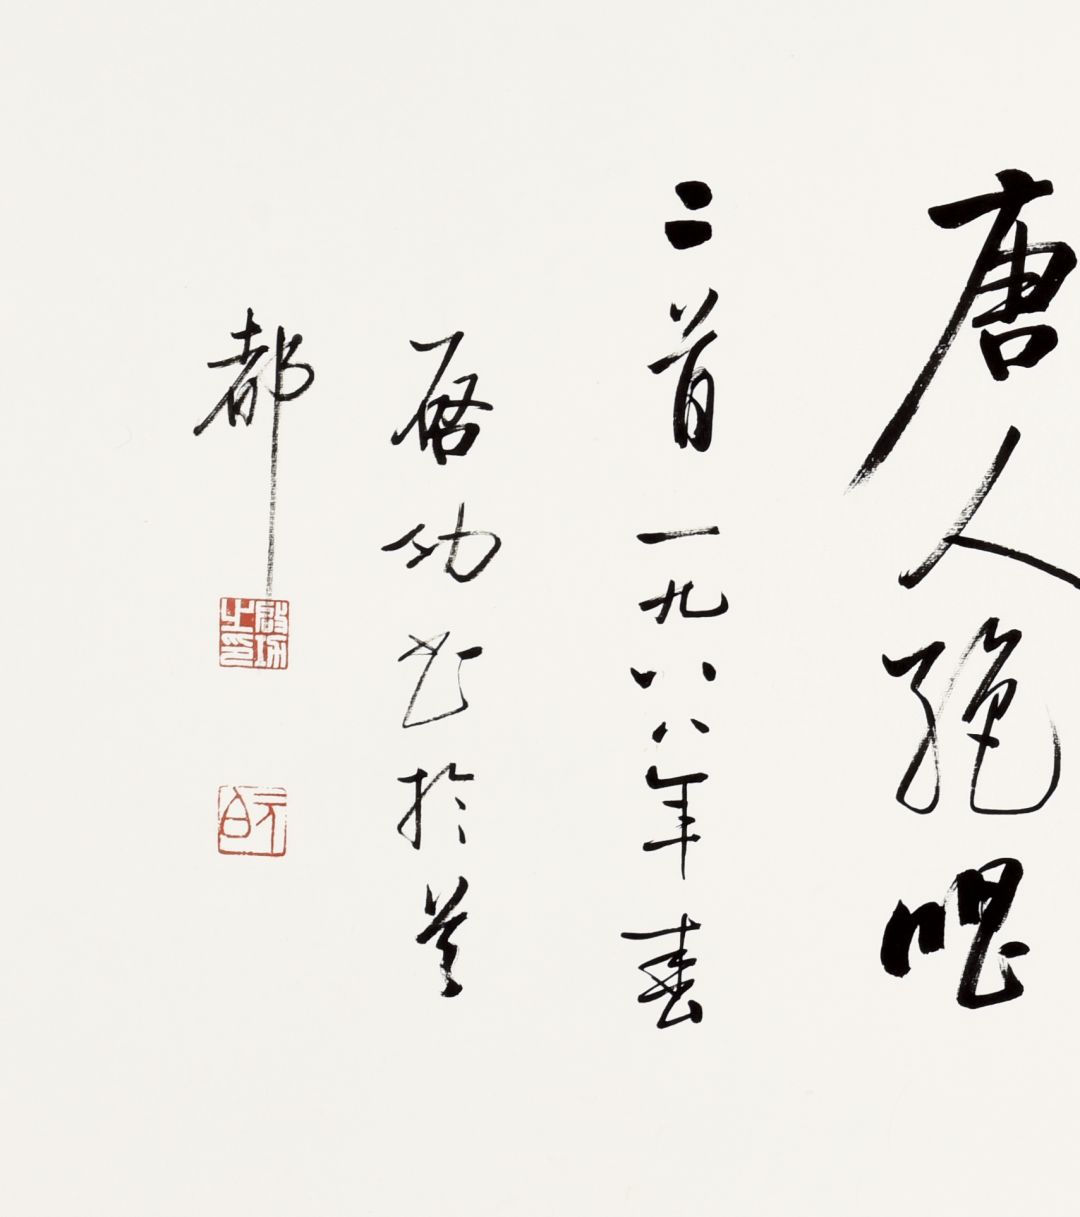 唐人絶唱
二首一九八八年春
啓功書於首
都
啓功之印
元白